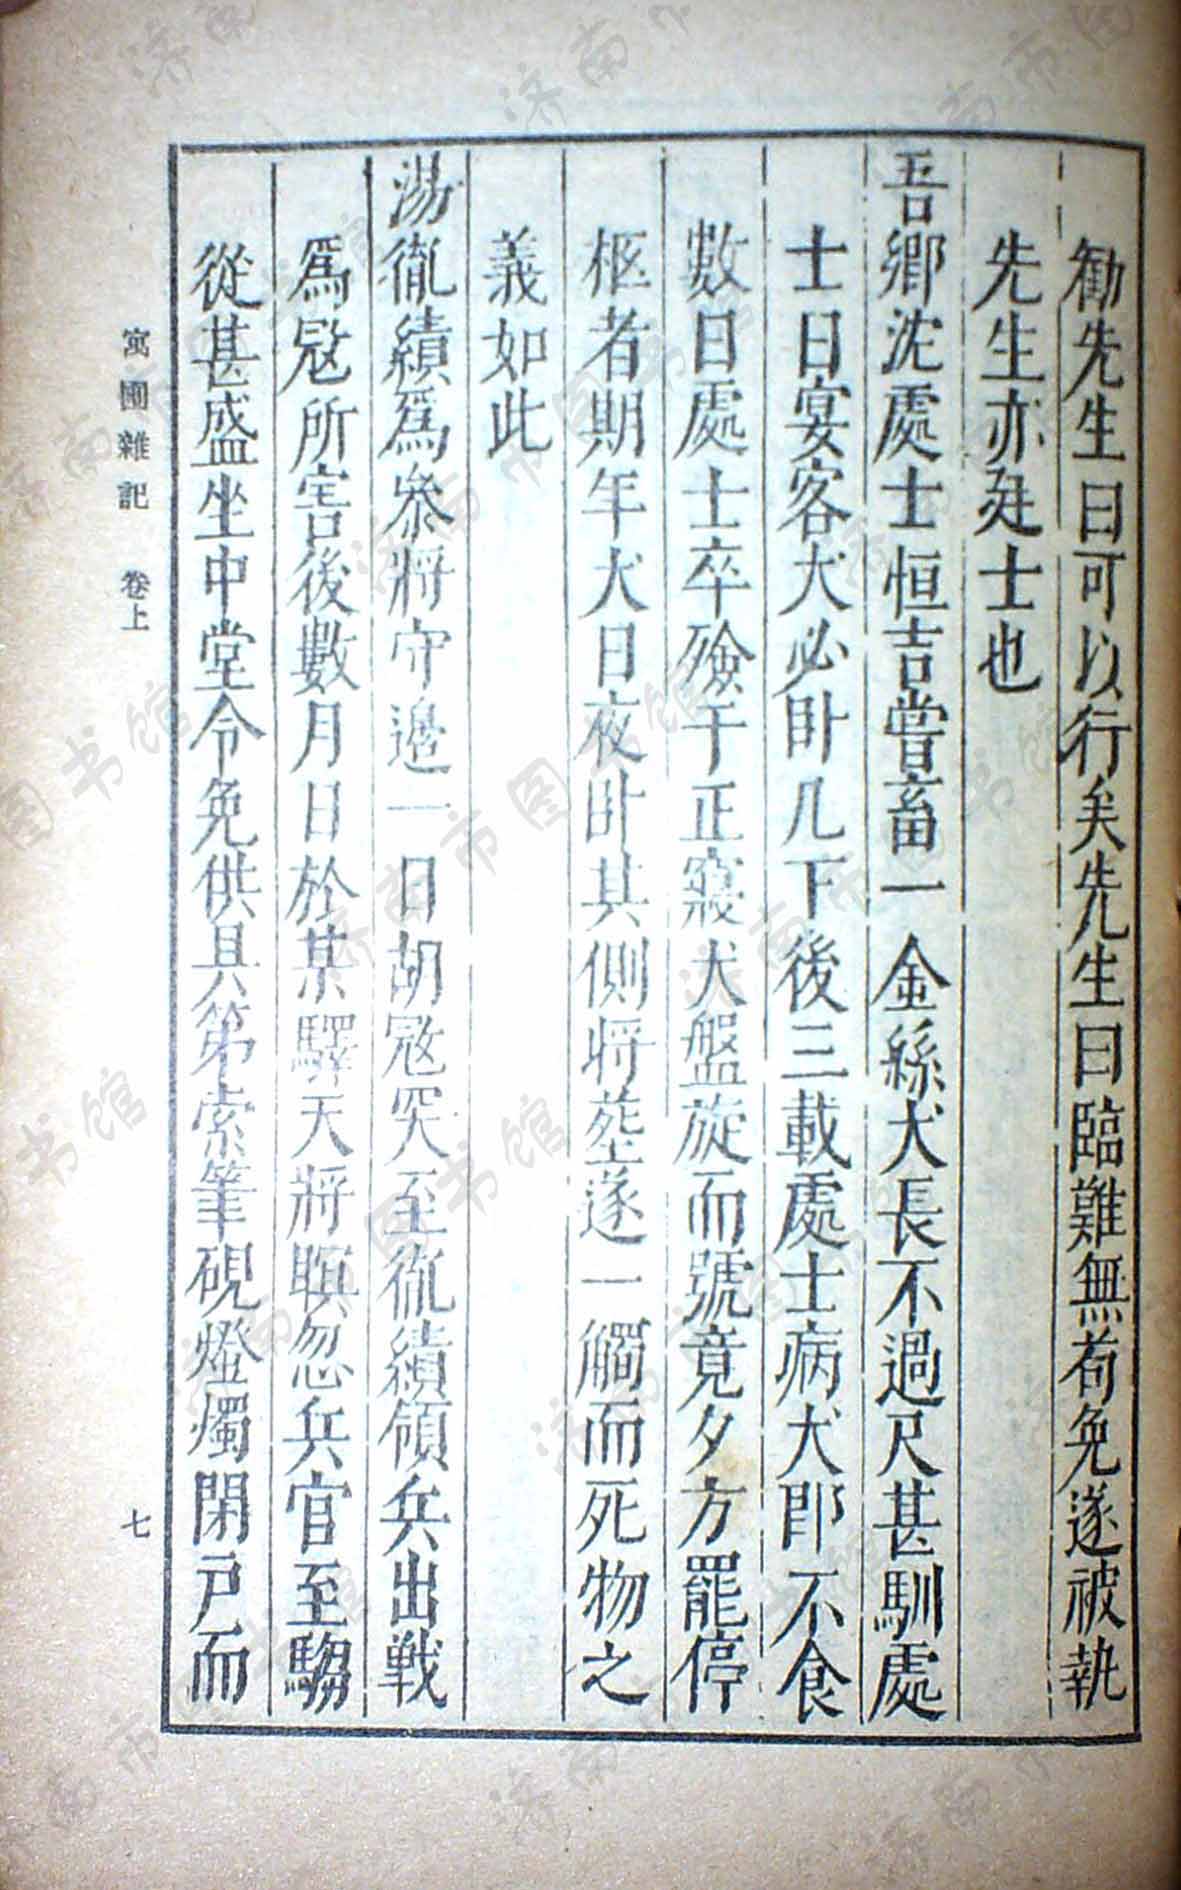 勸先生曰可以行矣先生曰臨難無苟免遂被執
先生亦廷士也
吾鄉沈處士恒吉嘗畜一金絲犬長不過尺甚馴處
士日宴客犬必卧几下後三載處士病犬即不食
數日處士卒殮于正寢犬盤旋而號竟夕方罷停
柩者期年犬日夜卧其側將塟遂一觸而死物之
義如此
湯胤績爲叅將守邉一日胡㓂突至胤績領兵出戰
爲㓂所害後數月日於某驛天將瞑忽兵官至騶
從甚盛坐中堂令免供具第索筆硯燈燭閉戸而
寓圃雜記 卷上
七
济南市图书馆